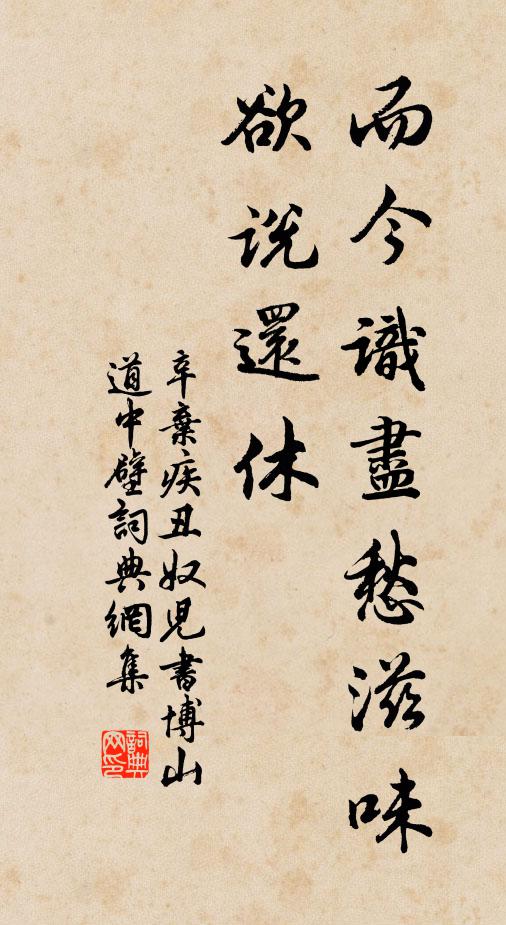 而今識盡愁滋味
欲説還休
辛棄疾丑奴兒書博山
道中壁詞典網集
詞典網印